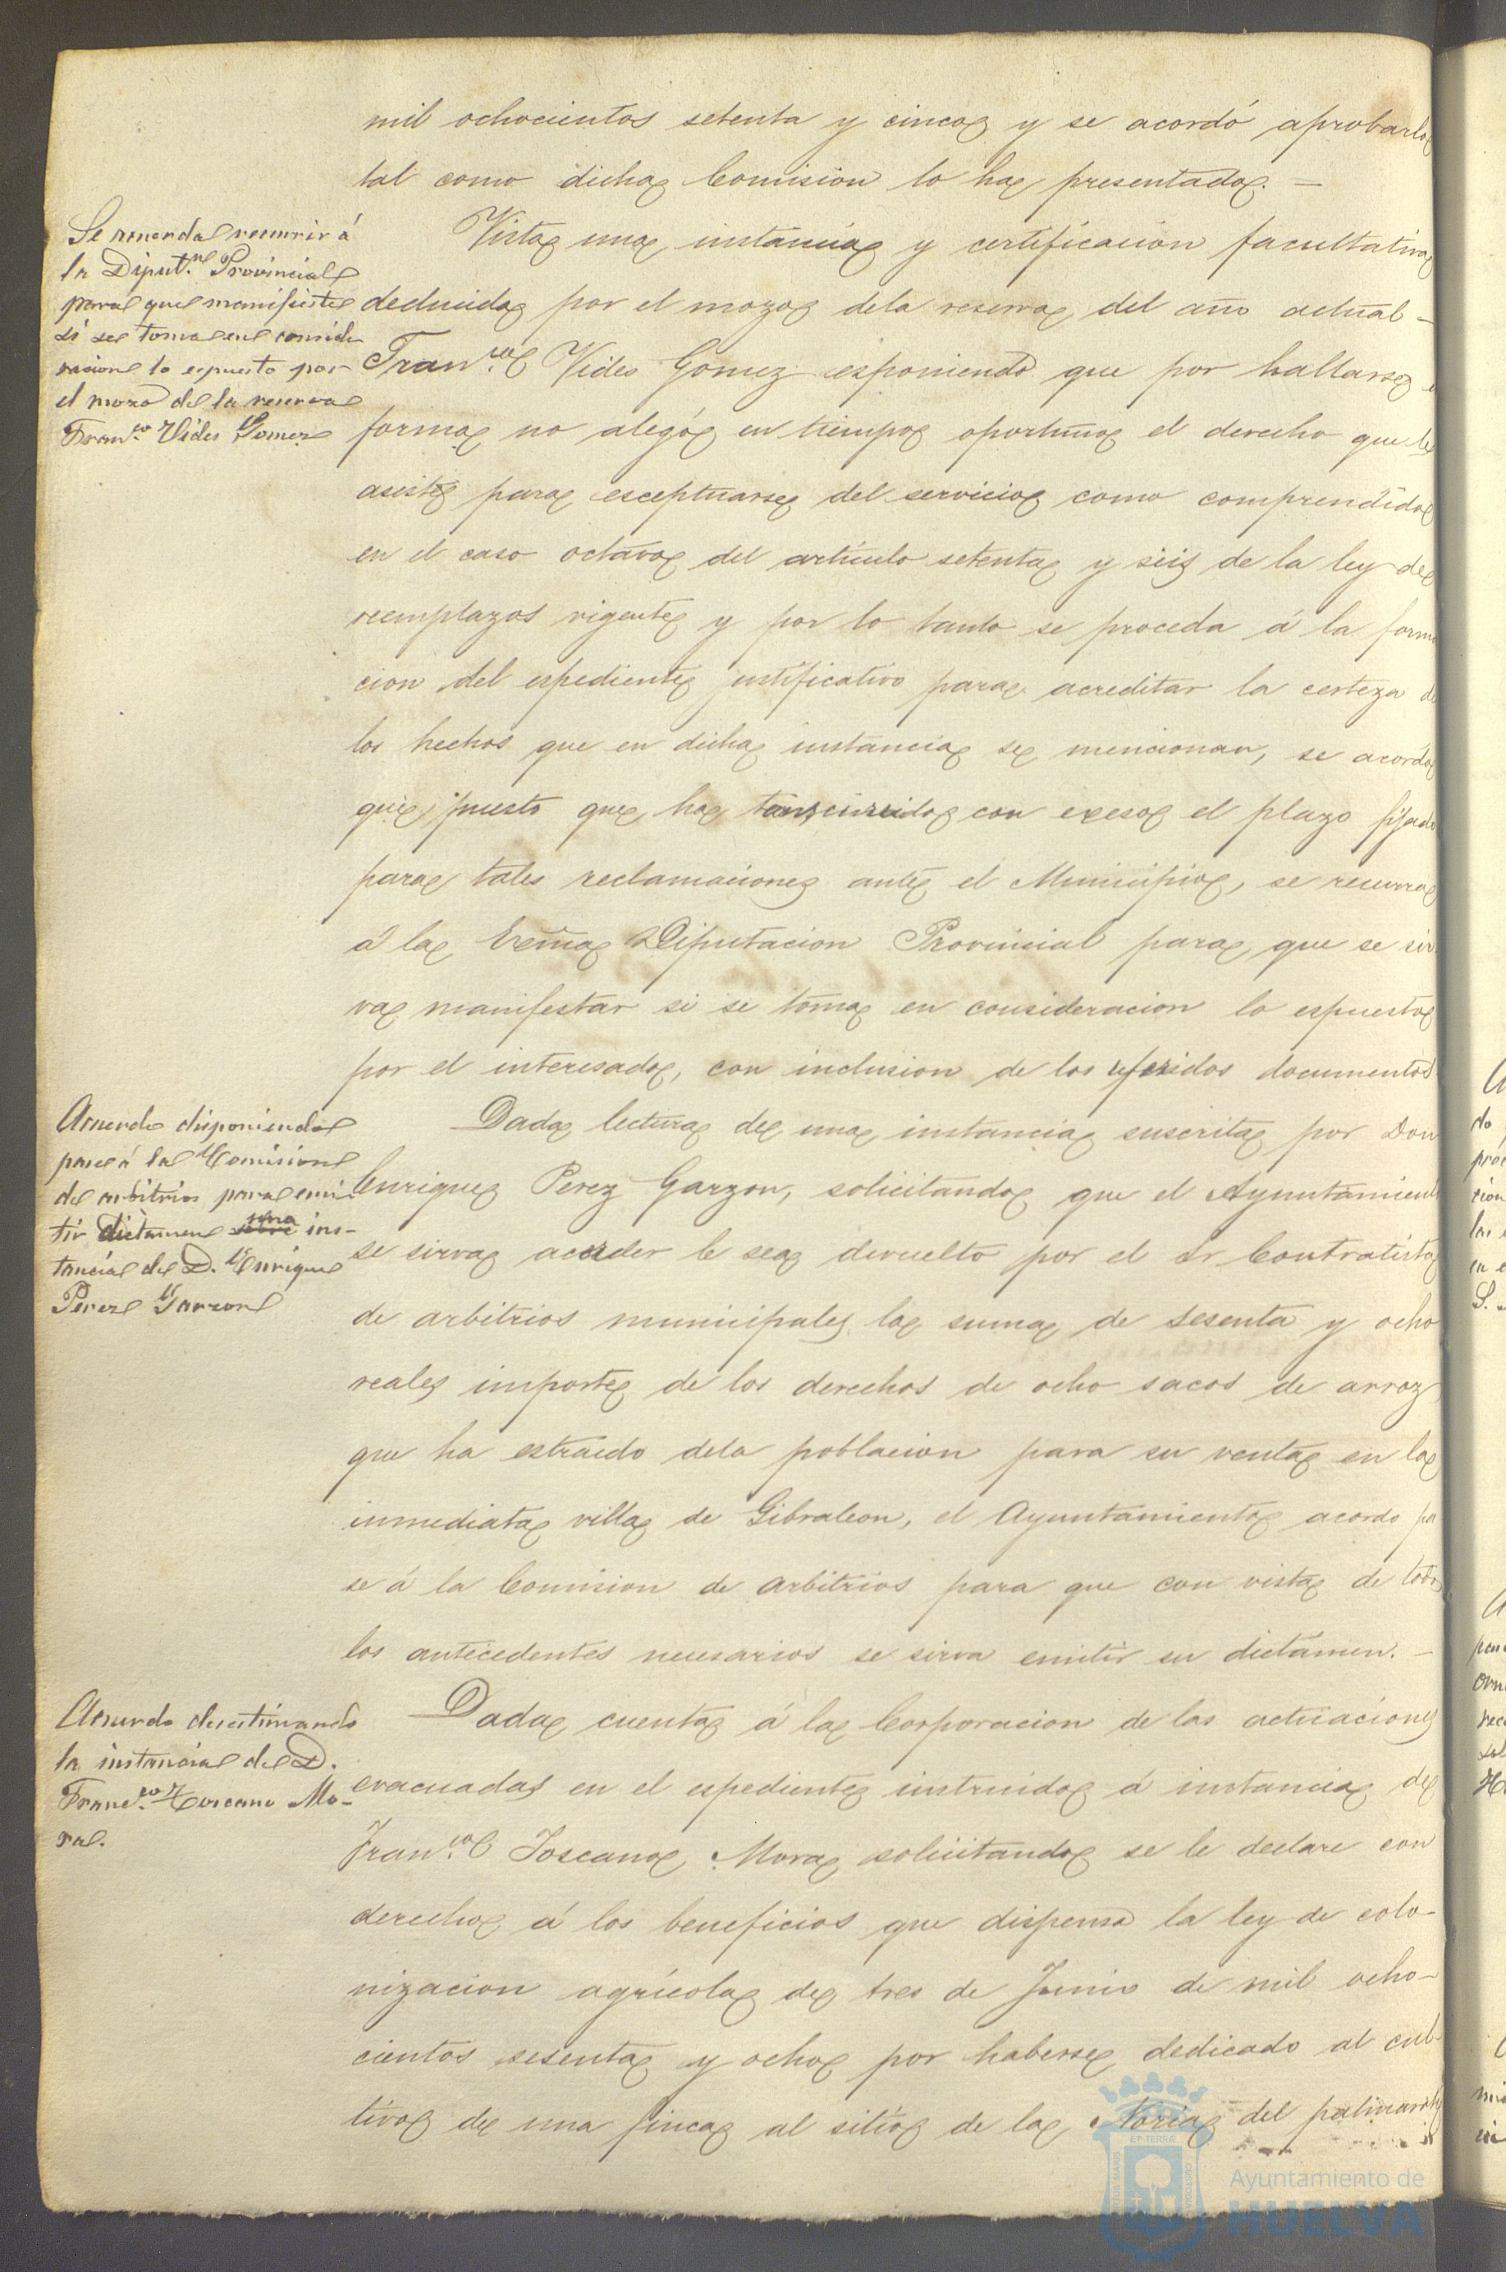 mil ochocientos setenta y cinco y se acordó aprobarlo
tal como dicha Comision lo ha presentado. =
Se acuerda recurrir á
la Diput.on Provincial
para que manifieste
si se toma en conside
racion lo espuesto por
el mozo de la reserva
Fran.co Vides Gomez
Vista una instancia y certificacion facultativa
deducida por el mozo dela reserva del año actual -
Fran.co Vides Gomez esponiendo que por hallarse
formo no alegó en tiempo oportuno el derecho que le
asiste para esceptuarse del servicio como comprendido
en el caso octavo del artículo setenta y seis de la ley de
reemplazos vigente y por lo tanto se proceda á la forma
cion del espediente justificativo para acreditar la certeza de
los hechos que en dicha instancia se mencionan, se acordó
que, puesto que ha transcurrido con exeso el plazo fijado
para tales reclamaciones ante el Municipio, se recurra
á la Ecsma Diputacion Provincial para que se sir
va manifestar si se toma en consideracion lo espuesto
por el interesado, con inclusion de los referidos documentos
Acuerdo disponiendo
pase á la Comision
de arbitrios para emi
tir dictamen sobre una ins-
tancia de D. Enrique
Perez Garzon
Dada lectura de una instancia suscrita por Don
Enrique Perez Garzon, solicitando que el Ayuntamient
se sirva acceder le sea devuelto por el Sr Contratista
de arbitrios municipales la suma de sesenta y ocho
reales importe de los derechos de ocho sacos de arroz
que ha estraido dela poblacion para su venta en la
inmediata villa de Gibraleon, el Ayuntamiento acordo pa
se á la Comision de arbitrios para que con vista de todos
los antecedentes necesarios se sirva emitir su dictámen. -
Acuerdo desestimando
la instancia de D.
Franc.co Toscano Mo-
ra.
Dada cuenta á la Corporacion de las actuaciones
evacuadas en el espediente instruido á instancia de
Fran.co Toscano Mora solicitando se le declare con
derecho á los beneficios que dispensa la ley de colo-
nizacion agrícola de tres de Junio de mil ocho-
cientos sesenta y ocho por haberse dedicado al cul-
tivo de una finca al sitio de la Noria del
Ayuntamiento de
HUELVA